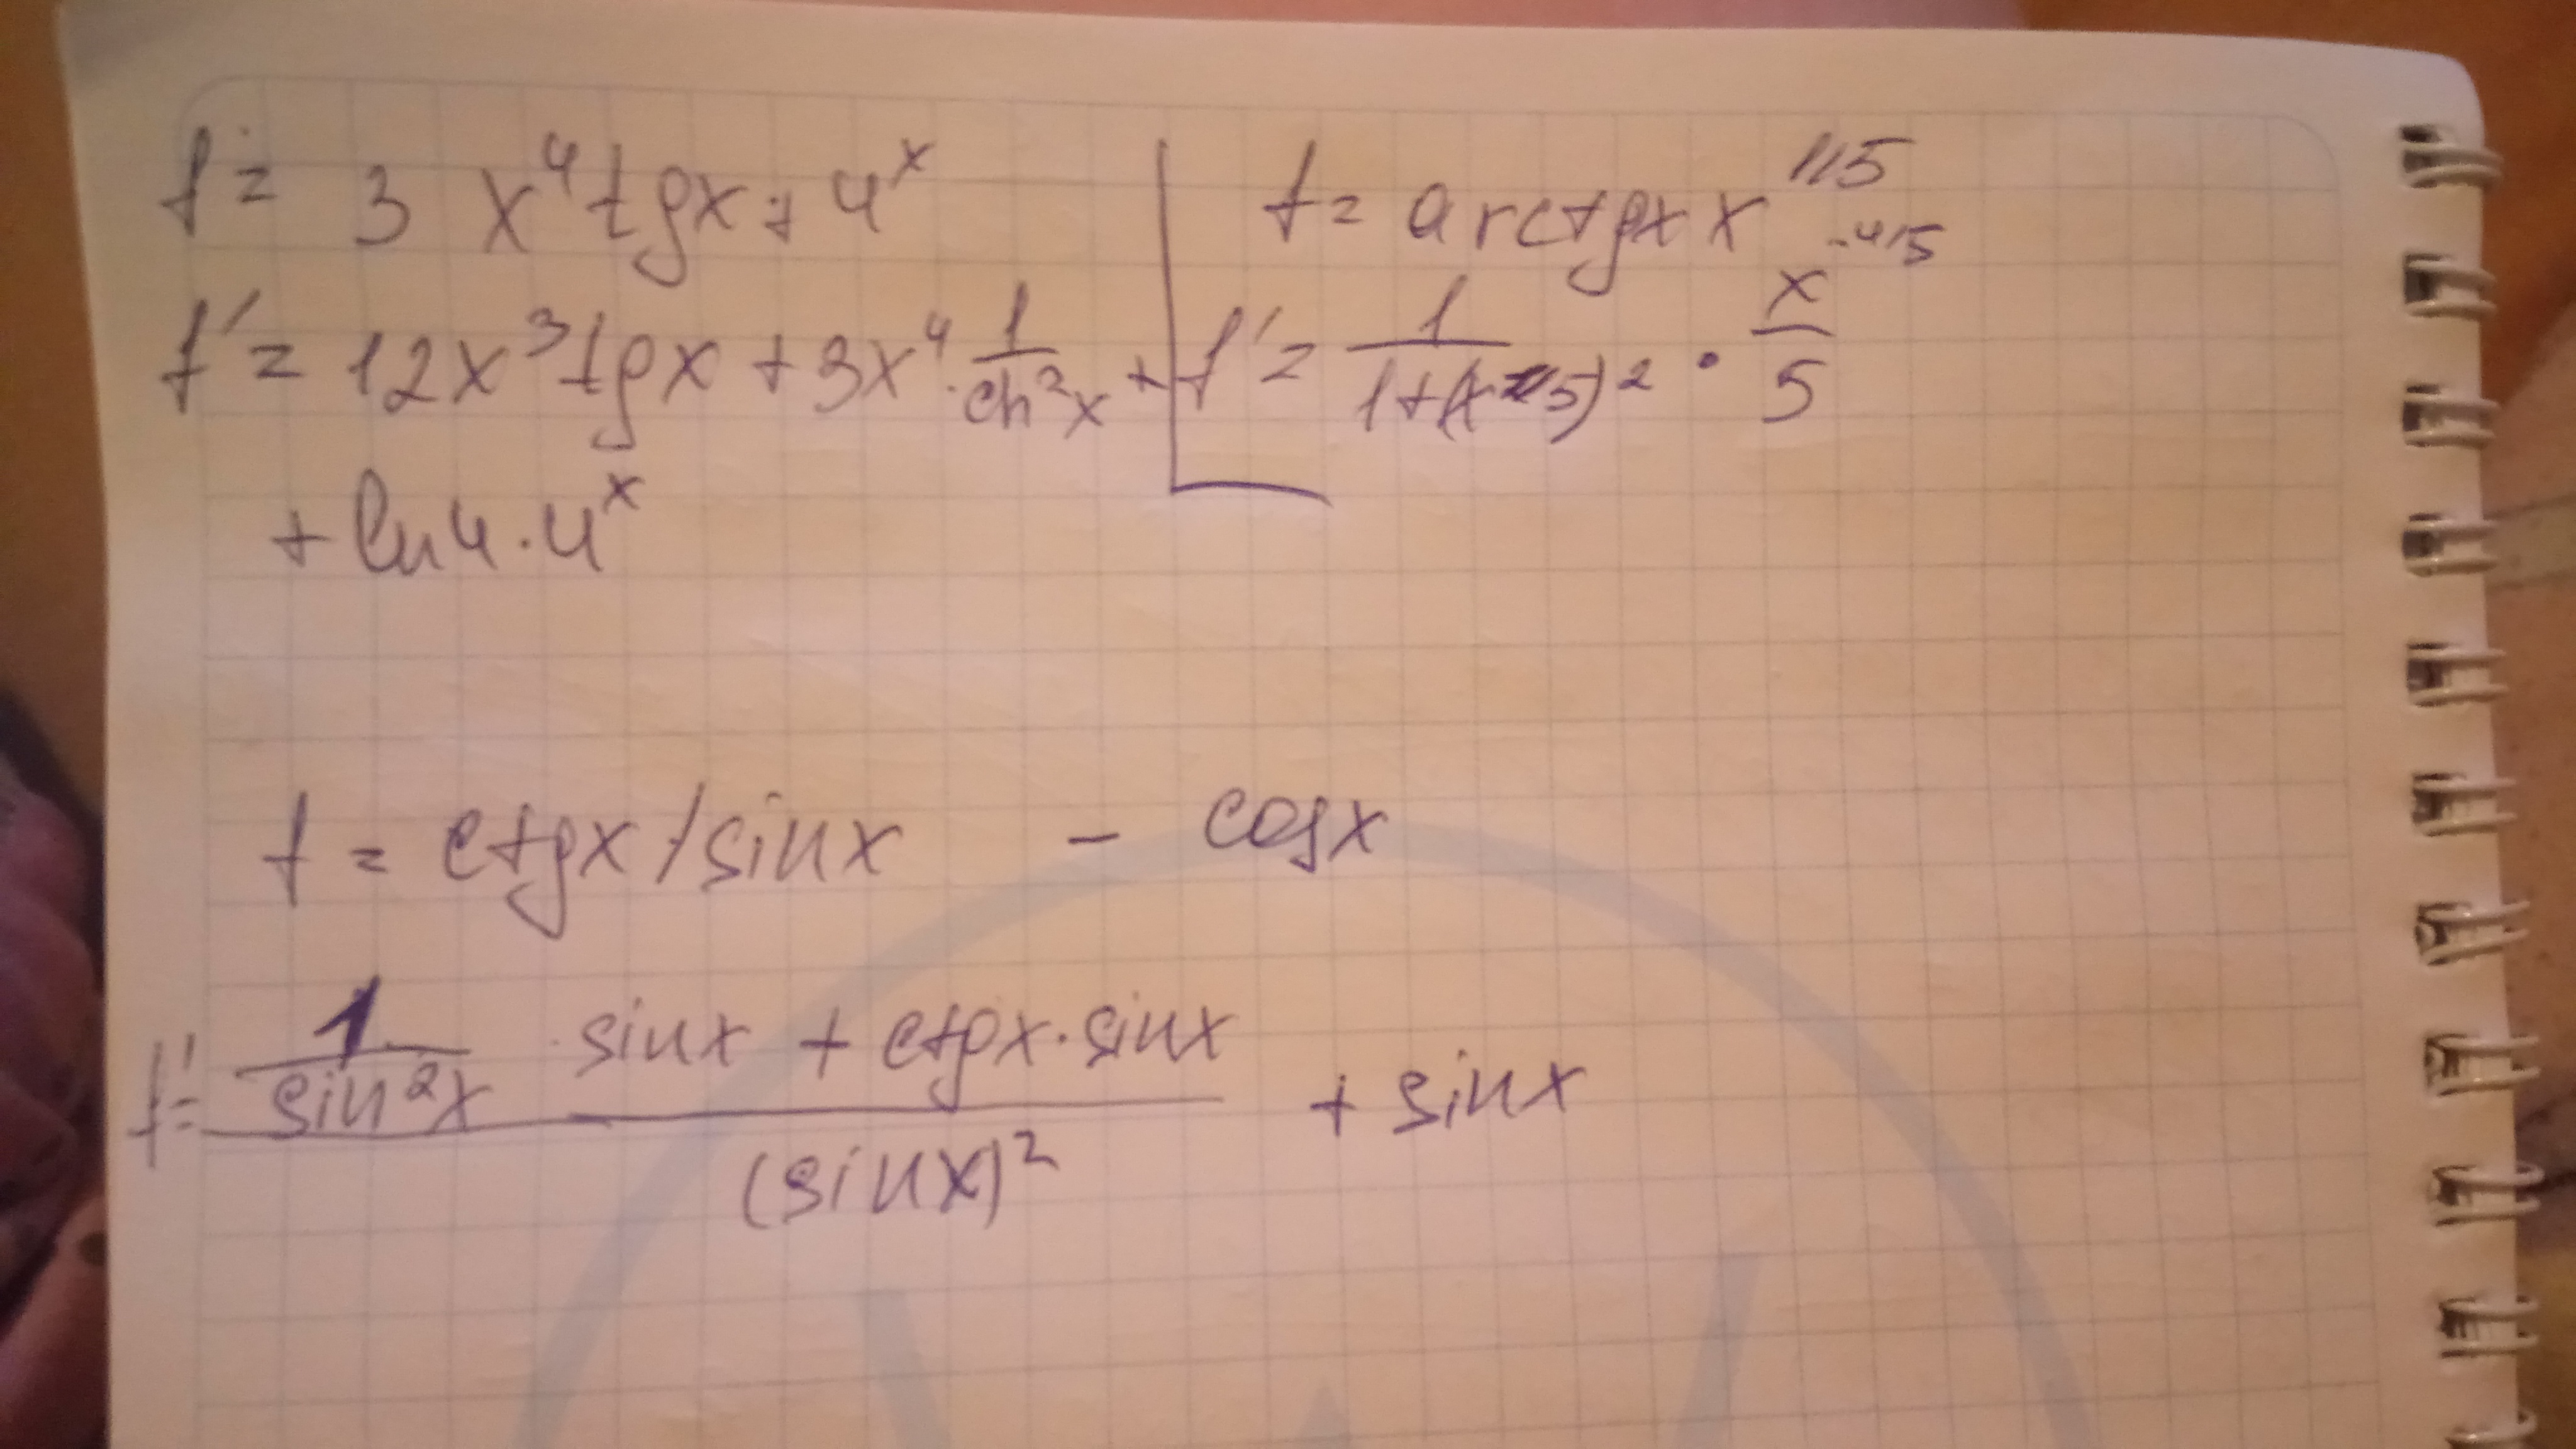 f = 3 x⁴ tgx + 4ˣ
f' = 12x³ tgx + 3x⁴ · 1/ch²x +
+ ln4 · 4ˣ
f = arctgx x^1/5
f' = 1/(1+(x^1/5)²) · x^-4/5 / 5
f = ctgx / sinx - cosx
f' = (1/sin²x · sinx + ctgx · sinx)/(sinx)² + sinx